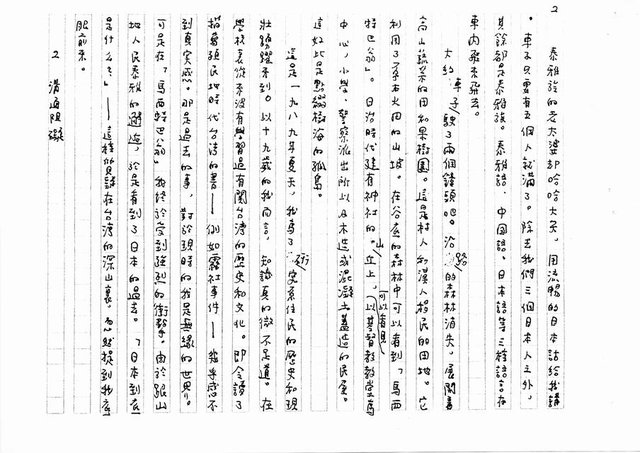 2
泰雅族的老太婆却哈哈大笑,用流暢的日本話給我講
。車子只要有五個人就滿了。除去我們三個日本人之外,
其餘都是泰雅族。泰雅語、中国語、日本語等三種語言在
車内飛來飛去。
大約車子駛了兩個鐘頭吧。沿路的森林消失,展開着
高山蔬菜的田和果樹園。這是村人和漢人移民的田地。它
利用了了不大田的山坡。在谷底的森林中可以看到「馬西
特巴翁」。日治時代建有神社的山丘上,可以看見(以基督教教堂為
中心,小學、警察派出所以及木造或混凝土蓋造的民屋。
這好比是點綴樹海的孤島。
這是一九八九年夏天,我為了研究原住民的歷史和現
狀踏踏來到。以十九歲的我而言,知識真的微不足道。在
學校裏從來沒有學習過有關台湾的歷史和文化。即令讀了
描寫殖民地時代台湾的書——例如霧社事件——我半感不
到真实感。那是過去的事,對於現時的我是無緣的世界。
可是在「馬西特巴翁」我終於受到強烈的衝擊。由於跟山
地人民泰雅的邂逅,於是看到了日本的過去。「日本到底
是什麽?」——這樣的質疑在台湾的深山裏,忽然提到我底
眼前來。
2 溝通阻礙